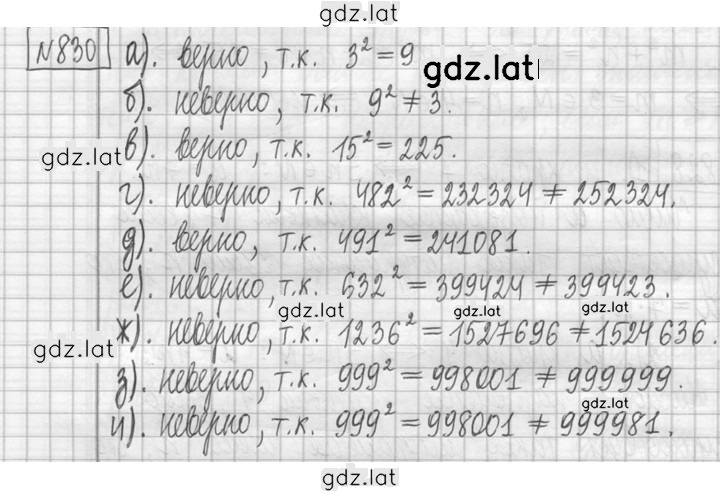 gdz.lat
N830 а). верно, т.к. 3² = 9
gdz.lat
б). неверно, т.к. 9² ≠ 3.
gdz.lat в). верно, т.к. 15² = 225.
г). неверно, т.к. 482² = 232324 ≠ 252324.
д). верно, т.к. 491² = 241081.
е). неверно, т.к. 632² = 399424 ≠ 399423.
gdz.lat gdz.lat gdz.lat
ж). неверно, т.к. 1236² = 1527696 ≠ 1524636.
gdz.lat
з). неверно, т.к. 999² = 998001 ≠ 999999.
gdz.lat
и). неверно, т.к. 999² = 998001 ≠ 999981.
gdz.lat